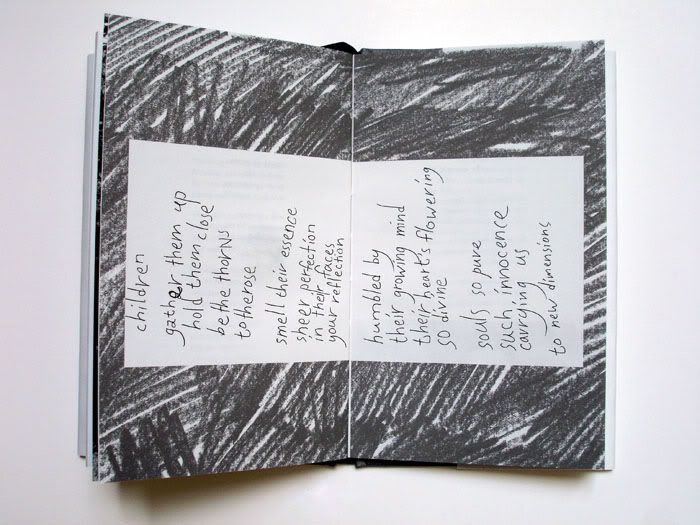 children
gather them up
hold them close
be the thorNs
to the rose
smell their essence
sheer perfection
in their faces
your reflection
humbled by
their growing mind
their heart's flowering
so divine
souls so pure
such innocence
carrying us
to new dimensions